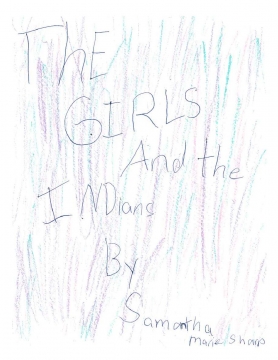 THE
GIRLS
And the
INDians
By
Samantha
Marie Sharp